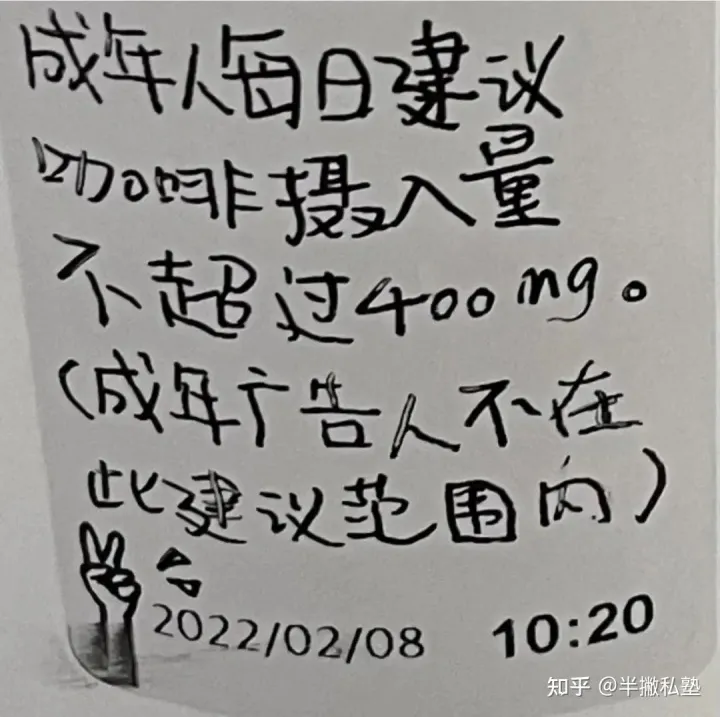 成年人每日建议
咖啡摄入量
不超过400mg。
(成年广告人不在
此建议范围内)
2022/02/08 10:20
知乎 @半撇私塾